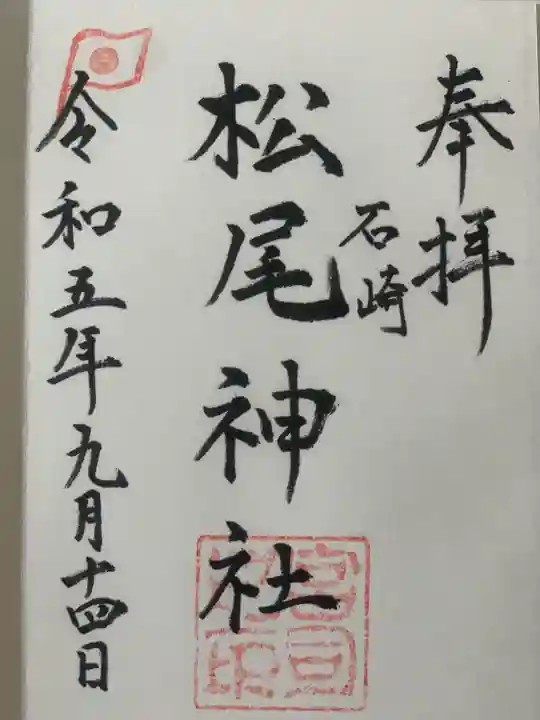 奉拝
石崎
松尾神社
令和五年九月十四日